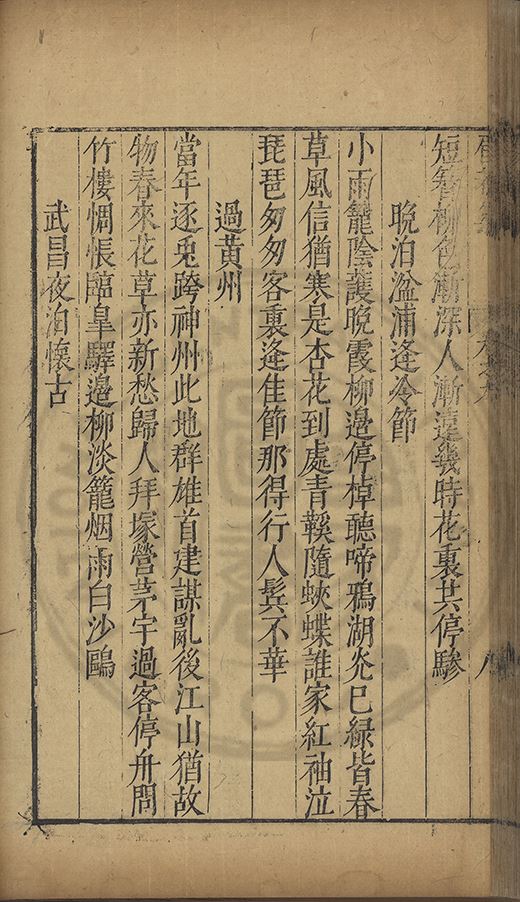 短簪柳色漸深人漸遠幾時花裏共停驂
晩泊湓浦逢令節
小雨籠陰護晩霞柳邊停棹聽啼鴉湖光已綠皆春
草風信猶寒是杏花到處青鞵隨蛺蝶誰家紅袖泣
琵琶匆匆客裏逢佳節那得行人鬂不華
過黃州
當年逐兎跨神州此地群雄首建謀亂後江山猶故
物春來花草亦新愁歸人拜塚營茅宇過客停舟問
竹樓惆悵臨臯驛邊柳淡籠烟雨白沙鷗
武昌夜泊懷古